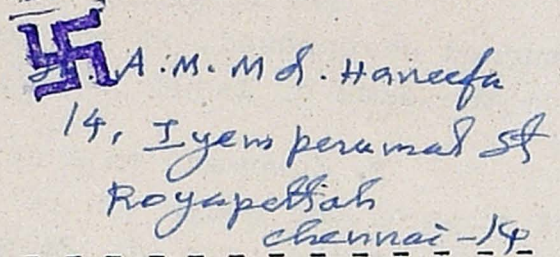 A. M. Md. Haneefa
14, Iyem perumal St
Royapettah
chennai - 14